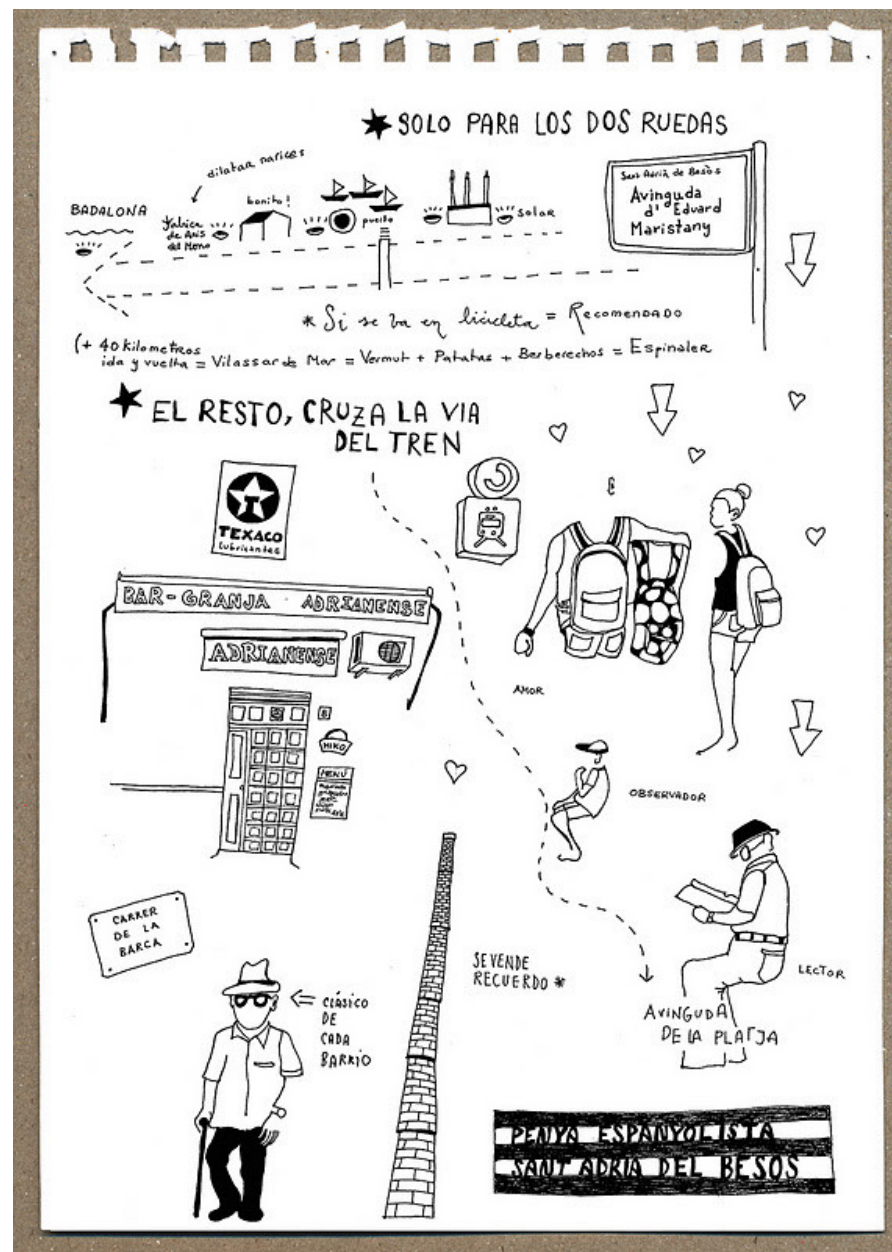 ★ SOLO PARA LOS DOS RUEDAS
dilatar narices
BADALONA
Fabica
de Anis
del Mono
bonito!
puerto
solar
Sant Adrià de Besòs
Avinguda
d' Eduard
Maristany
* Si se ba en bicicleta = RECOMENDADO
(+ 40 kilometros
ida y vuelta = Vilassar de Mar = Vermut + Patatas + Berberechos = Espinaler
★ EL RESTO, CRUZA LA VIA
DEL TREN
T
TEXACO
lubricantes
BAR - GRANJA ADRIANENSE
ADRIANENSE
MIKO
MENU
AMOR
OBSERVADOR
CARRER
DE LA
BARCA
CLÁSICO
DE
CADA
BARRIO
SE VENDE
RECUERDO *
LECTOR
AVINGUDA
DE LA PLATJA
PENYA ESPANYOLISTA
SANT ADRIA DEL BESOS